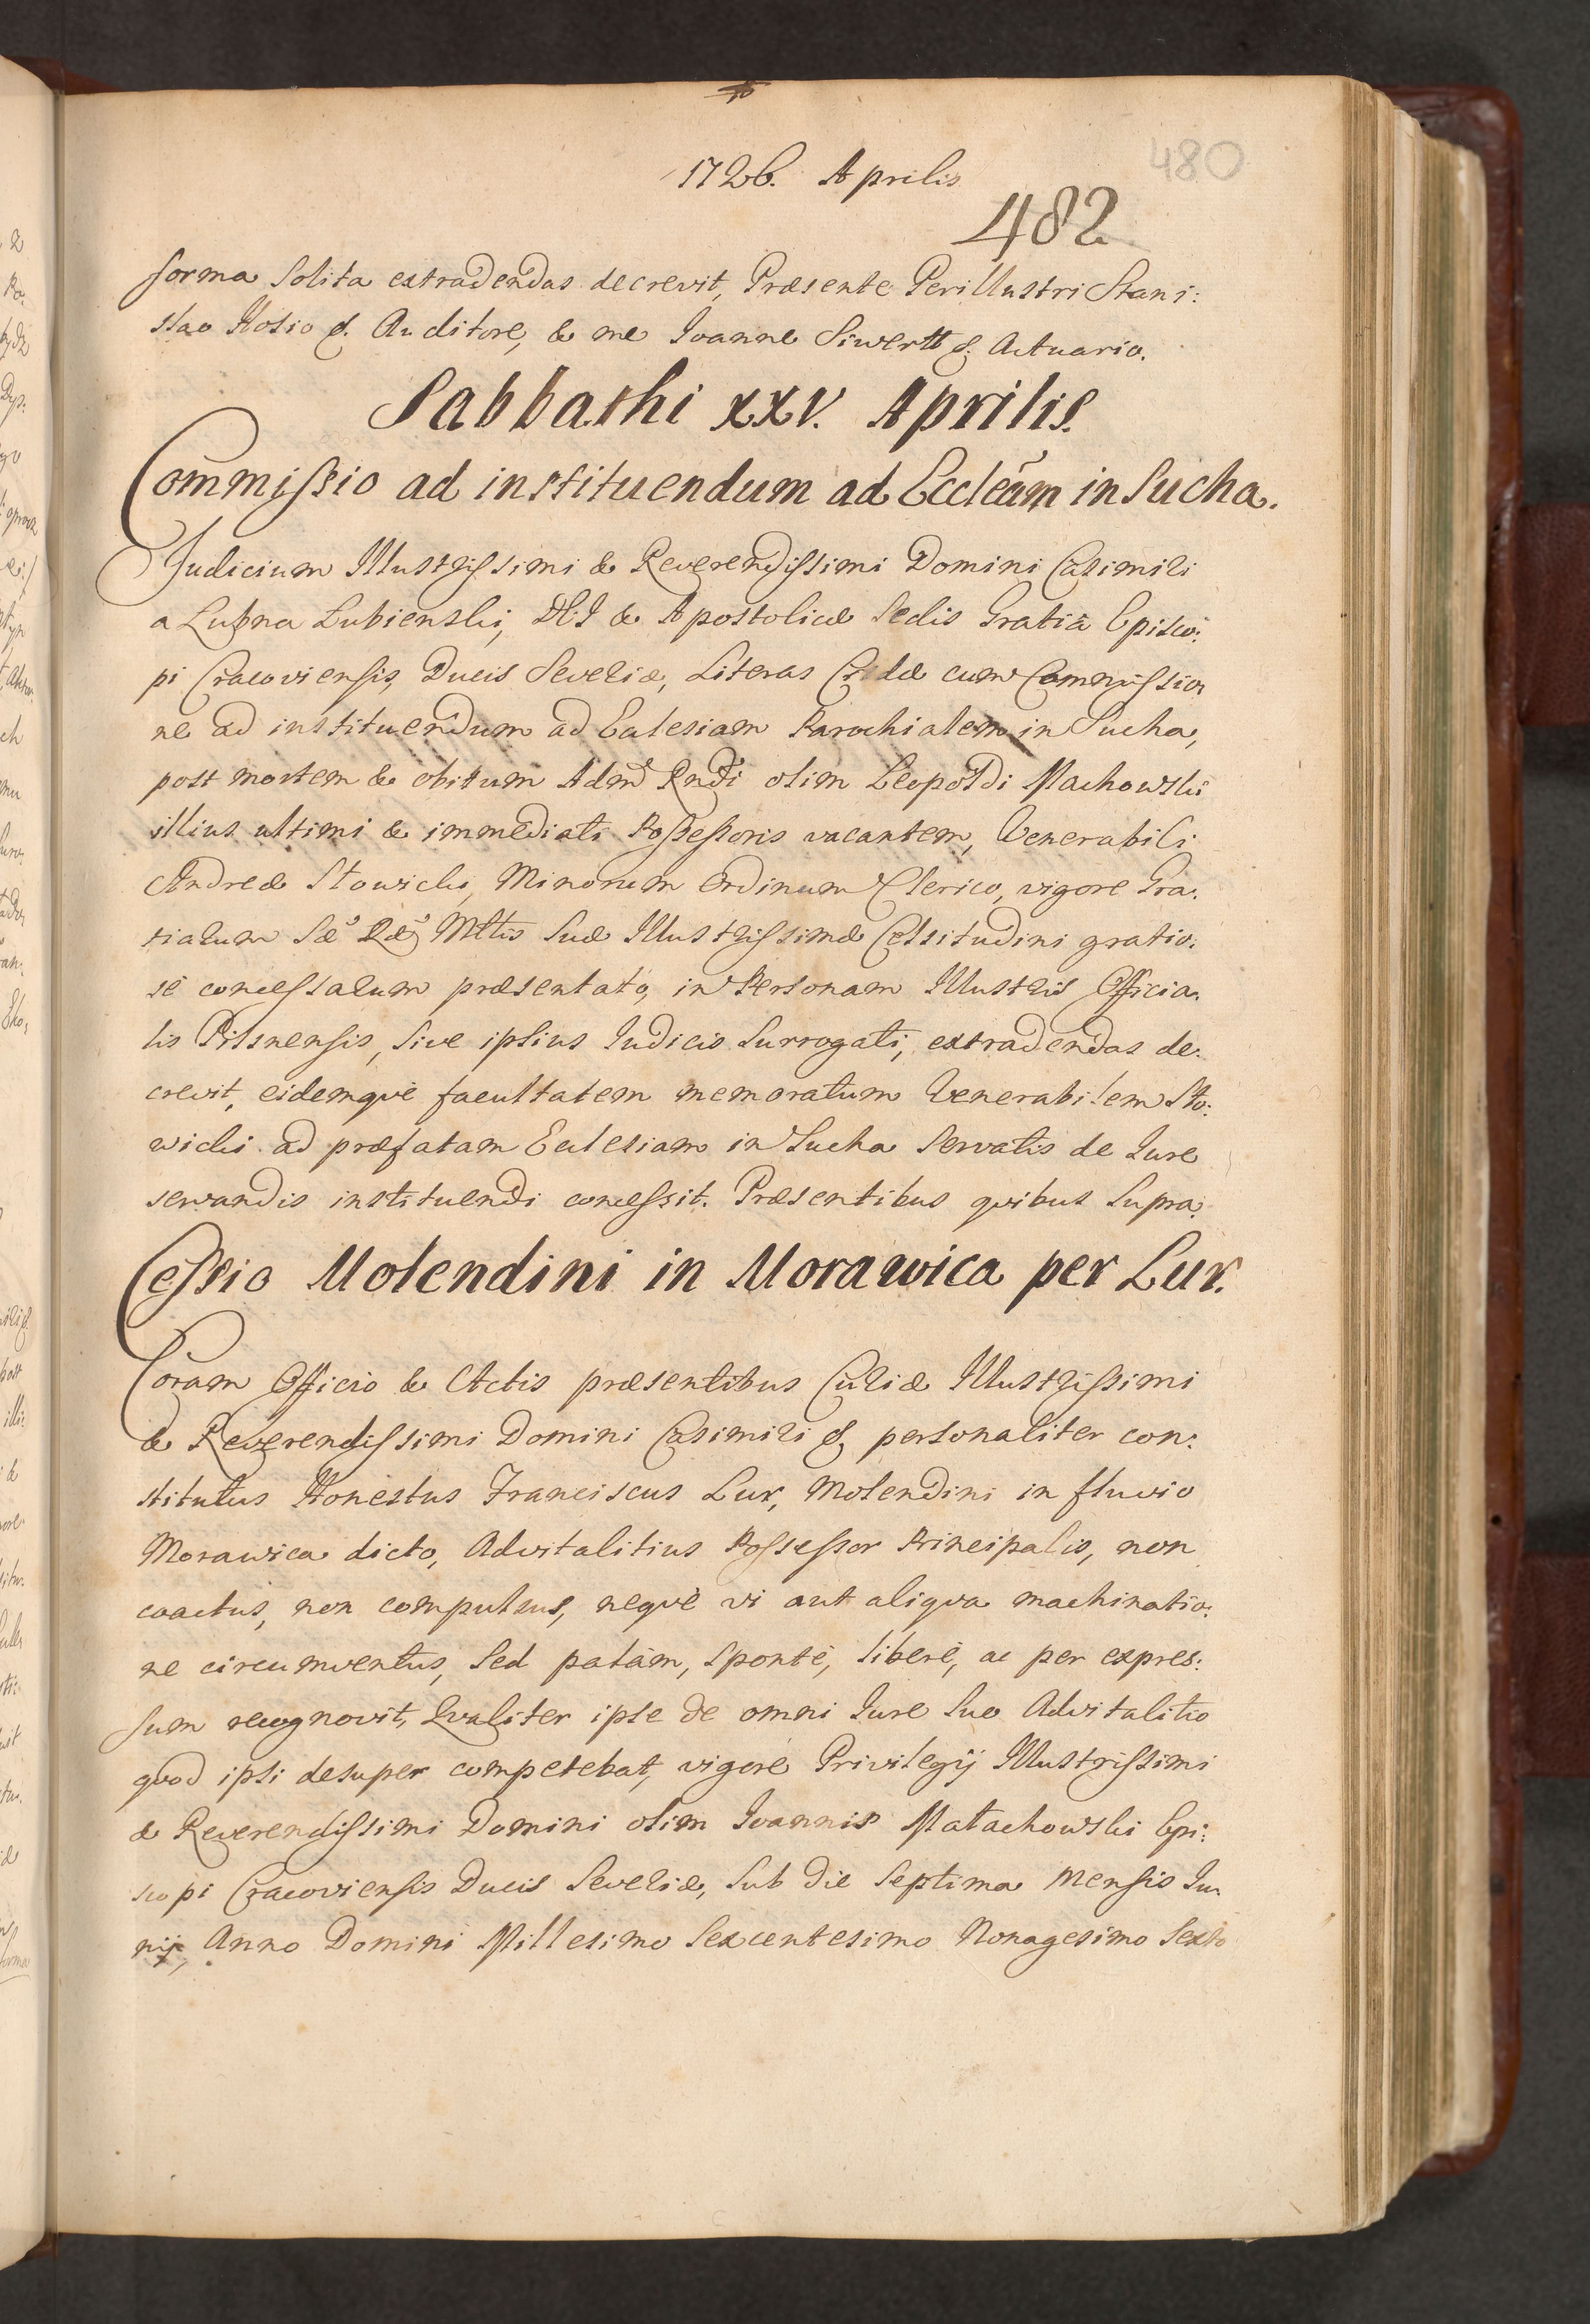 1726. Aprilis
480
482
forma solita extradendas decrevit, Præsente Perillustri Stani:
slao Hosio &. Auditore, & me Ioanne Siwertt &. Actuario.
Sabbathi XXV. Aprilis.
Commissio ad instituendum ad Eccleãm in Sucha.
Judicium Illustrissimi & Reverendissimi Domini Casimiri
a Lubna Lubienski, DEI & Apostolicæ Sedis Gratiâ Episco:
pi Cracoviensis, Ducis Severiæ, Literas cum Commissio
ne ad instituendum ad Ecclesiam Parochialem in Sucha,
post mortem & obitum Admd Rndi olim Leopoldi Machowski
illius ultimi & immediati Possessoris vacantem, Venerabili
Andreæ Słowicki, Minorum Ordinum Clerico, vigore Gra:
tiarum Sæ Ræ Mttis Suæ Illustrissimæ Celsitudini gratio:
sè concessarum præsentato, in Personam Illustris Officia:
lis Pilsnensis, sive ipsius Iudicis Surrogati, extradendas de:
crevit, eidemque facultatem memoratum Venerabilem Sło:
wicki ad præfatam Ecclesiam in Sucha servatis de Iure
servandis instituendi concessit. Præsentibus quibus supra.
Cessio Molendini in Morawica per Lur.
Coram Officio & Actis præsentibus Curiæ Illustrissimi
& Reverendissimi Domini Casimiri &. personaliter con:
stitutus Honestus Franciscus Lur, Molendini in fluvio
Morawica dicto, Advitalitius Possessor Principalis, non
coactus, non compulsus, neque vi aut aliqva machinatio:
ne circumventus, sed palàm, spontè, liberè, ac per expres:
sum recognovit, Qvaliter ipse de omni Iure suo Advitalitio
qvod ipsi desuper competebat, vigore Privilegij Illustrissimi
& Reverendissimi Domini olim Ioannis Małachowski Epi:
scopi Cracoviensis Ducis Severiæ, sub die Septima Mensis Iu:
nij, Anno Domini Millesimo Sexcentesimo Nonagesimo Sexto